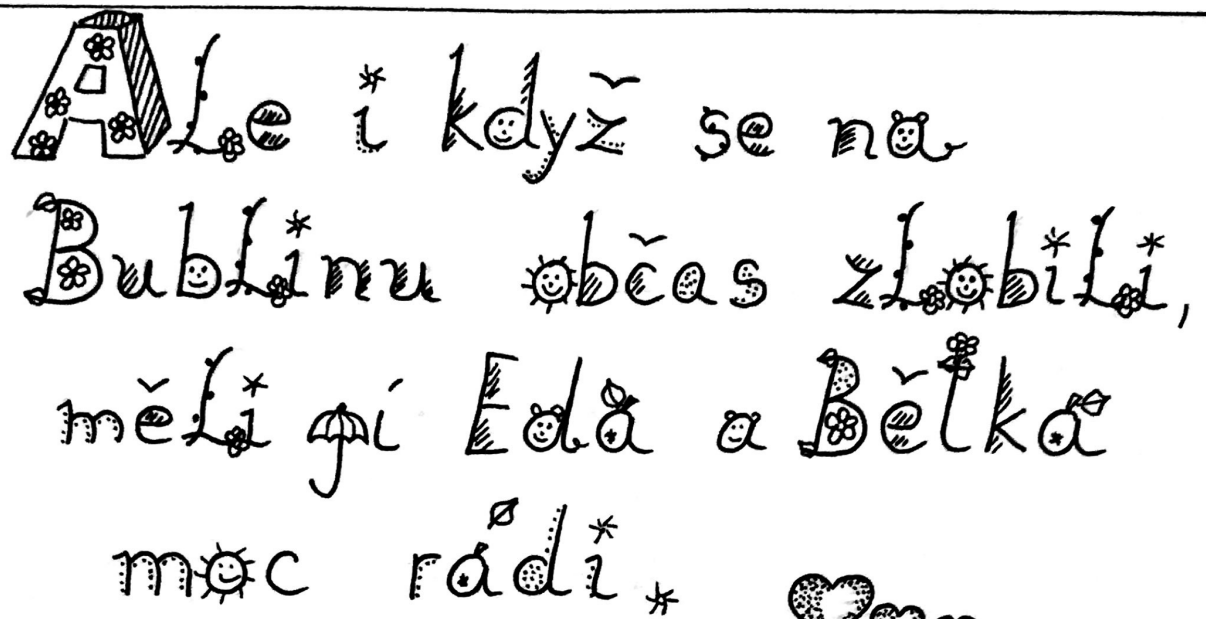 Ale i když se na
Bublinu občas zlobili,
měli jí Eda a Bělka
moc rádi.